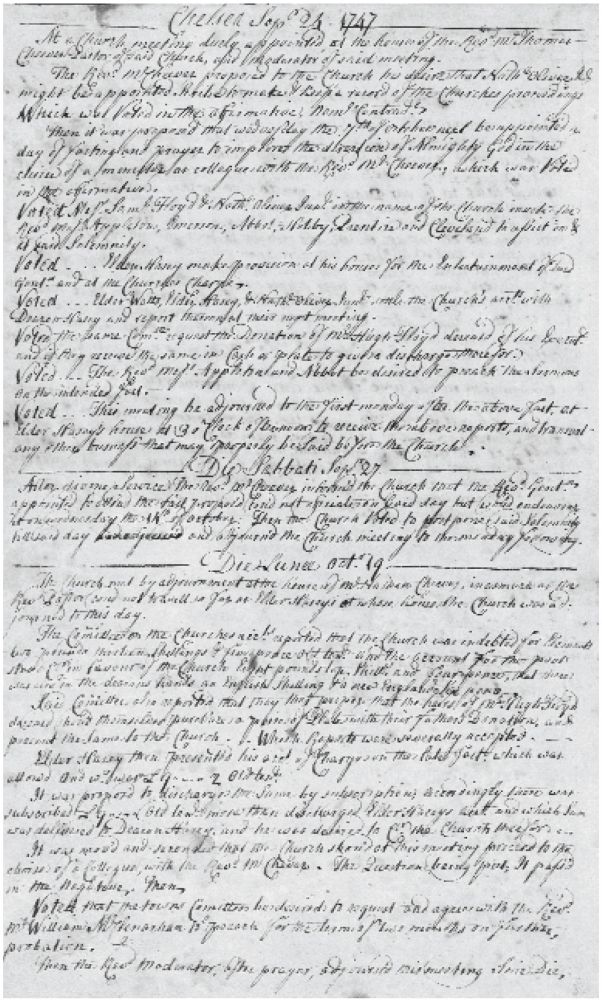 Chelsea Sepr. 24. 1747
At a Church meeting duely appointed at the house of the Revd. Mr. Thomas
Cheever Pastor of said Church, & Moderator of said meeting.
The Revd. Mr. Cheever proposed to the Church his desire that Nathl. Oliver
might be appointed Scribe to make & keep a record of the Churches proceedings
Which was Voted in the affirmative, Nemo. Contrad.
Then it was proposed that wednesday the 7th of october next be appointed a
day of fasting and prayer to implore the direction of Almighty God in the
choice of a minister as collegue with the Revd. Mr. Cheever, which was Voted
in the affirmative.
Voted Messrs. Saml. Floyd & Nathl. Oliver Junr. in the name of the Church invite the
Revd. Messrs. Appleton, Emerson, Abbot, Hobby, and Cleveland to assist in &
at said Solemnity.
Voted ... Elder Hasey make provision at his house for the Entertainment of said
Gentn. and at the Churches Charge.
Voted ... Elder Watts, Elder Hasey, & Nathl. Oliver Junr. settle the Church's acct. with
Deacon Hasey and report thereon at their next meeting.
Voted the same Comtee. request the Donation of Mr. Hugh Floyd deceasd. of his Execut.
and if they receive the same in Cash or plate to give a discharge therefor.
Voted ... The Revd. Messrs. Appleton and Abbot be desired to preach the sermons
on the intended fast.
Voted ... This meeting be adjourned to the first monday after the above fast, at
Elder Hasey's house at 3 o'Clock afternoon to receive the above reports, and transact
any other business that may properly be laid before the Church.
Die Sabbati Sepr. 27
After divine Service the Revd. Mr. Cheever informed the Church that the Revd. Gentn.
appointed to attend the fast proposed could not on said day but would endeavour
it on wednesday the of october. Then the Church Voted to postpone said Solemnity
till said day and adjourned the Church meeting to the monday following.
Die Lunae Octr. 19
The Church met by adjournment at the house of Mr. Nathan Cheever, inasmuch as the
Revd. Pastor could not so well go far as Elder Hasey's at whose house the Church was ad-
journed to this day.
The Comittee on the Churches acct. reported that the Church was indebted for Elements
two pounds thirteen shillings & five pence old tenr. and the account for the poor
stood Cr. in favour of the Church Eight pounds six shills. and four pence, that there
was in the deacons hands an English Shilling & a new England
Said Comittee also reported that they that the heirs of Mr. Hugh Floyd
deceasd. would themselves purchase a piece of Plate with their fathers Donation, and
present the same to the Church. Which Reports were severally accepted.
Elder Hasey then presented his acct. of Charges on the late fast, which was
allowed and 2 Old tenr.
It was proposd to discharge the same by subscription; accordingly there was
subscribed old tenr. more than discharged Elder Haseys acct. and which sum
was delivered to Deacon Hasey, and he was desired to Cr. the Church therefor.
It was moved and seconded that the Church should at this meeting proceed to the
choice of a Collegue, with the Revd. Mr. Cheever. The Question being put, It passd
in the Negative, Then
Voted, that the towns Comittee be desired to request and agree with the Revd.
Mr. William McClenachan to preach for the term of two months on further
probation.
Then the Revd. Moderator, after prayer, adjourned this meeting Sine Die,